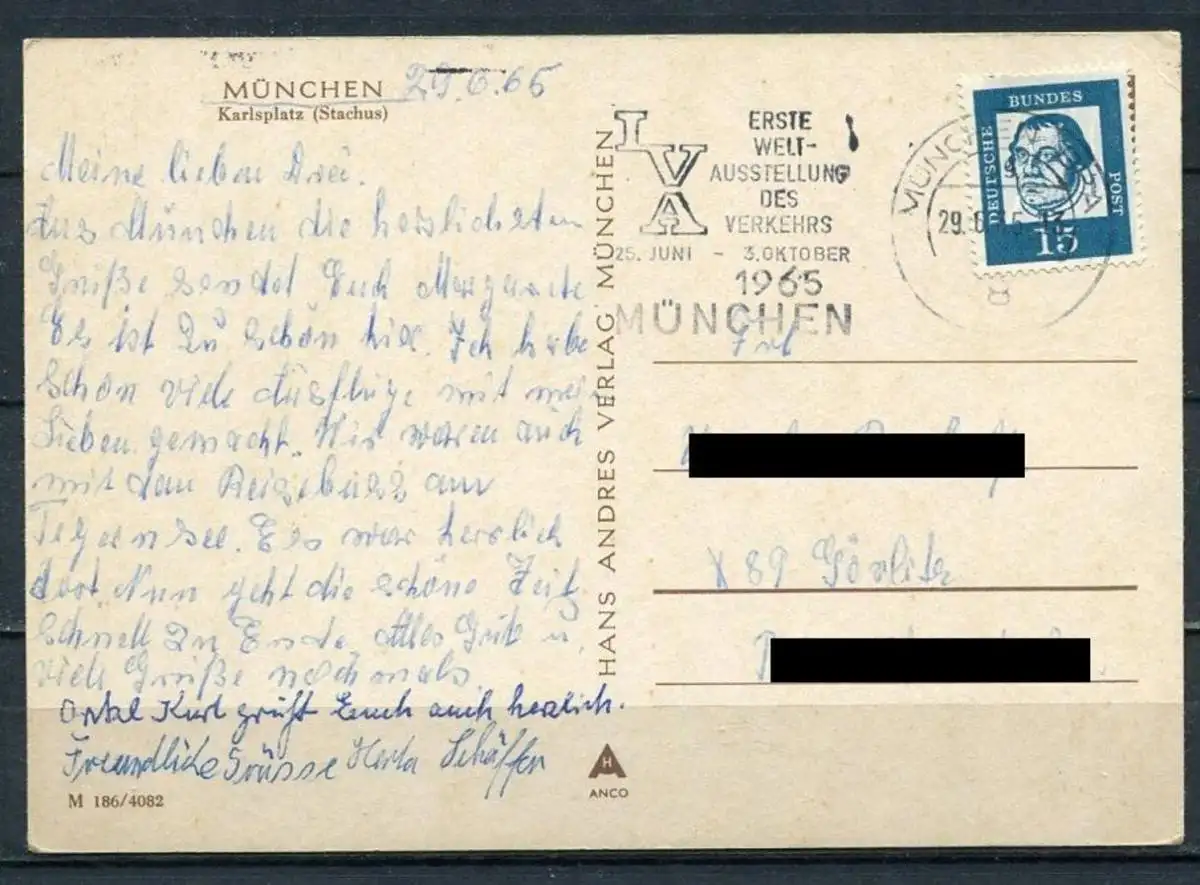 MÜNCHEN 29.6.65
Karlsplatz (Stachus)
Meine lieben Drei.
Aus München die herzlichsten
Grüße sendet Euch Margarete
Es ist zu schön hier. Ich habe
schon viele Ausflüge mit mei
Lieben gemacht. Wir waren auch
mit dem Reisebuss am
Tegernsee. Es war herrlich
dort. Nun geht die schöne Zeit
schnell zu Ende. Alles Gute u.
viele Grüße nochmals.
Onkel Kurt grüßt Euch auch herzlich.
Freundliche Grüsse Herta Schäffer
M 186/4082
HANS ANDRES VERLAG MÜNCHEN
H
ANCO
IVA
ERSTE
WELT-
AUSSTELLUNG
DES
VERKEHRS
25. JUNI - 3. OKTOBER
1965
MÜNCHEN
29.6.65
DEUTSCHE BUNDES POST
15
Frl
X 89 Görlitz